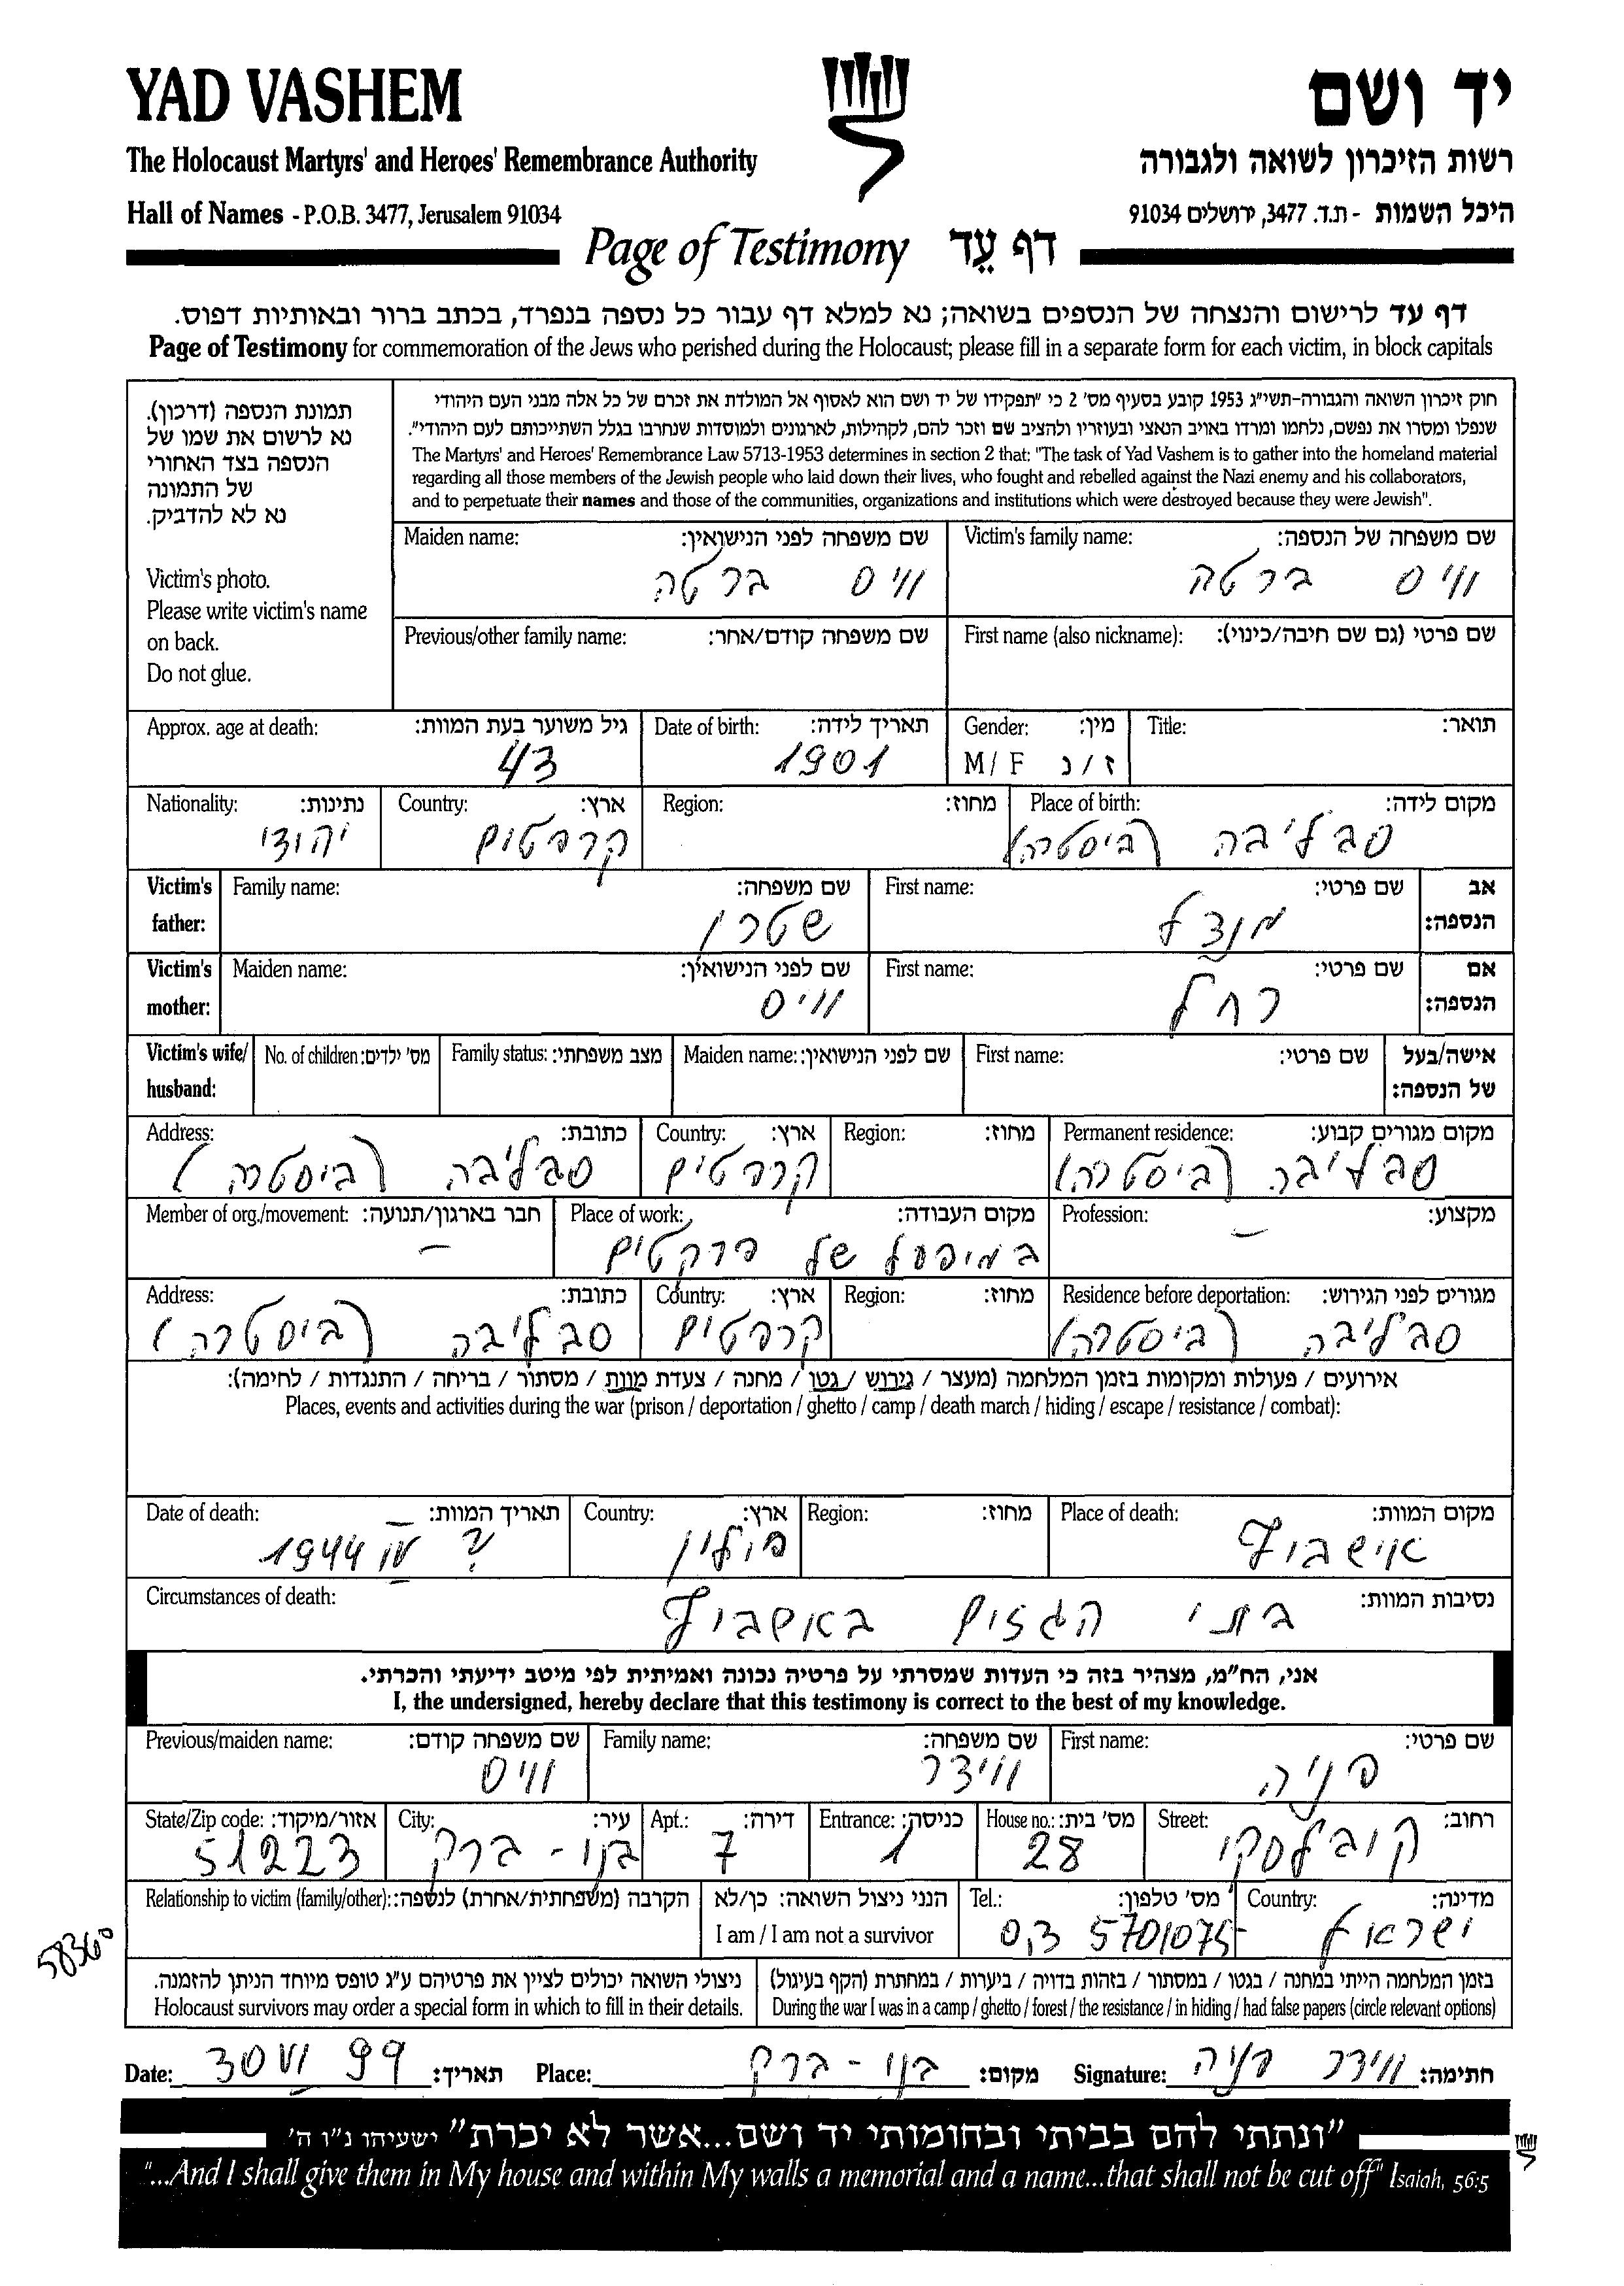 YAD VASHEM
יד ושם
The Holocaust Martyrs' and Heroes' Remembrance Authority
רשות הזיכרון לשואה ולגבורה
Hall of Names - P.O.B. 3477, Jerusalem 91034
היכל השמות - ת.ד. 3477, ירושלים 91034
Page of Testimony דף עֵד
דף עד לרישום והנצחה של הנספים בשואה; נא למלא דף עבור כל נספה בנפרד, בכתב ברור ובאותיות דפוס.
Page of Testimony for commemoration of the Jews who perished during the Holocaust; please fill in a separate form for each victim, in block capitals
תמונת הנספה (דרכון).
נא לרשום את שמו של
הנספה בצד האחורי
של התמונה
נא לא להדביק.
Victim's photo.
Please write victim's name
on back.
Do not glue.
חוק זיכרון השואה והגבורה-תשי"ג 1953 קובע בסעיף מס' 2 כי "תפקידו של יד ושם הוא לאסוף אל המולדת את זכרם של כל אלה מבני העם היהודי
שנפלו ומסרו את נפשם, נלחמו ומרדו באויב הנאצי ובעוזריו ולהציב שם וזכר להם, לקהילות, לארגונים ולמוסדות שנחרבו בגלל השתייכותם לעם היהודי".
The Martyrs' and Heroes' Remembrance Law 5713-1953 determines in section 2 that: "The task of Yad Vashem is to gather into the homeland material
regarding all those members of the Jewish people who laid down their lives, who fought and rebelled against the Nazi enemy and his collaborators,
and to perpetuate their names and those of the communities, organizations and institutions which were destroyed because they were Jewish".
Victim's family name: שם משפחה של הנספה:
ווייס ברטה
Maiden name: שם משפחה לפני הנישואין:
ווייס ברטה
First name (also nickname): שם פרטי (גם שם חיבה/כינוי):
Previous/other family name: שם משפחה קודם/אחר:
Title: תואר:
Gender: מין:
M / F ז / נ
Date of birth: תאריך לידה:
1901
Approx. age at death: גיל משוער בעת המוות:
43
Place of birth: מקום לידה:
סבליבה (ביסטרה)
Region: מחוז:
Country: ארץ:
קרפטים
Nationality: נתינות:
יהודי
Victim's father: אב הנספה:
First name: שם פרטי:
מנדל
Family name: שם משפחה:
שטרן
Victim's mother: אם הנספה:
First name: שם פרטי:
רחל
Maiden name: שם לפני הנישואין:
ווייס
Victim's wife/ husband: אישה/בעל של הנספה:
First name: שם פרטי:
Maiden name: שם לפני הנישואין:
Family status: מצב משפחתי:
No. of children: מס' ילדים:
Permanent residence: מקום מגורים קבוע:
סבליבה (ביסטרה)
Region: מחוז:
Country: ארץ:
קרפטים
Address: כתובת:
סבליבה (ביסטרה)
Profession: מקצוע:
–
Place of work: מקום העבודה:
במיפעל של פרקטים
Member of org./movement: חבר בארגון/תנועה:
–
Residence before deportation: מגורים לפני הגירוש:
סבליבה (ביסטרה)
Region: מחוז:
Country: ארץ:
קרפטים
Address: כתובת:
סבליבה (ביסטרה)
אירועים / פעולות ומקומות בזמן המלחמה (מעצר / גירוש / גטו / מחנה / צעדת מוות / מסתור / בריחה / התנגדות / לחימה):
Places, events and activities during the war (prison / deportation / ghetto / camp / death march / hiding / escape / resistance / combat):
Place of death: מקום המוות:
אוישבוץ
Region: מחוז:
Country: ארץ:
פולין
Date of death: תאריך המוות:
? 1944
Circumstances of death: נסיבות המוות:
בתי הגזים באשבוץ
אני, הח"מ, מצהיר בזה כי העדות שמסרתי על פרטיה נכונה ואמיתית לפי מיטב ידיעתי והכרתי.
I, the undersigned, hereby declare that this testimony is correct to the best of my knowledge.
First name: שם פרטי:
פניה
Family name: שם משפחה:
ווידר
Previous/maiden name: שם משפחה קודם:
ווייס
Street: רחוב:
קובלסקי
House no.: מס' בית:
28
Entrance: כניסה:
1
Apt.: דירה:
7
City: עיר:
בנו - ברק
State/Zip code: אזור/מיקוד:
51223
Country: מדינה:
ישראל
Tel.: מס' טלפון:
03 5701075
הנני ניצול השואה: כן/לא
I am / I am not a survivor
Relationship to victim (family/other): הקרבה (משפחתית/אחרת) לנספה:
58360
בזמן המלחמה הייתי במחנה / בגטו / במסתור / בזהות בדויה / ביערות / במחתרת (הקף בעיגול)
During the war I was in a camp / ghetto / forest / the resistance / in hiding / had false papers (circle relevant options)
ניצולי השואה יכולים לציין את פרטיהם ע"ג טופס מיוחד הניתן להזמנה.
Holocaust survivors may order a special form in which to fill in their details.
Date: 30 VI 99 תאריך: Place: בנו - ברק מקום: Signature: ווידר פניה חתימה:
"ונתתי להם בביתי ובחומותי יד ושם...אשר לא יכרת" ישעיהו נ"ו ה'
"...And I shall give them in My house and within My walls a memorial and a name...that shall not be cut off" Isaiah, 56:5